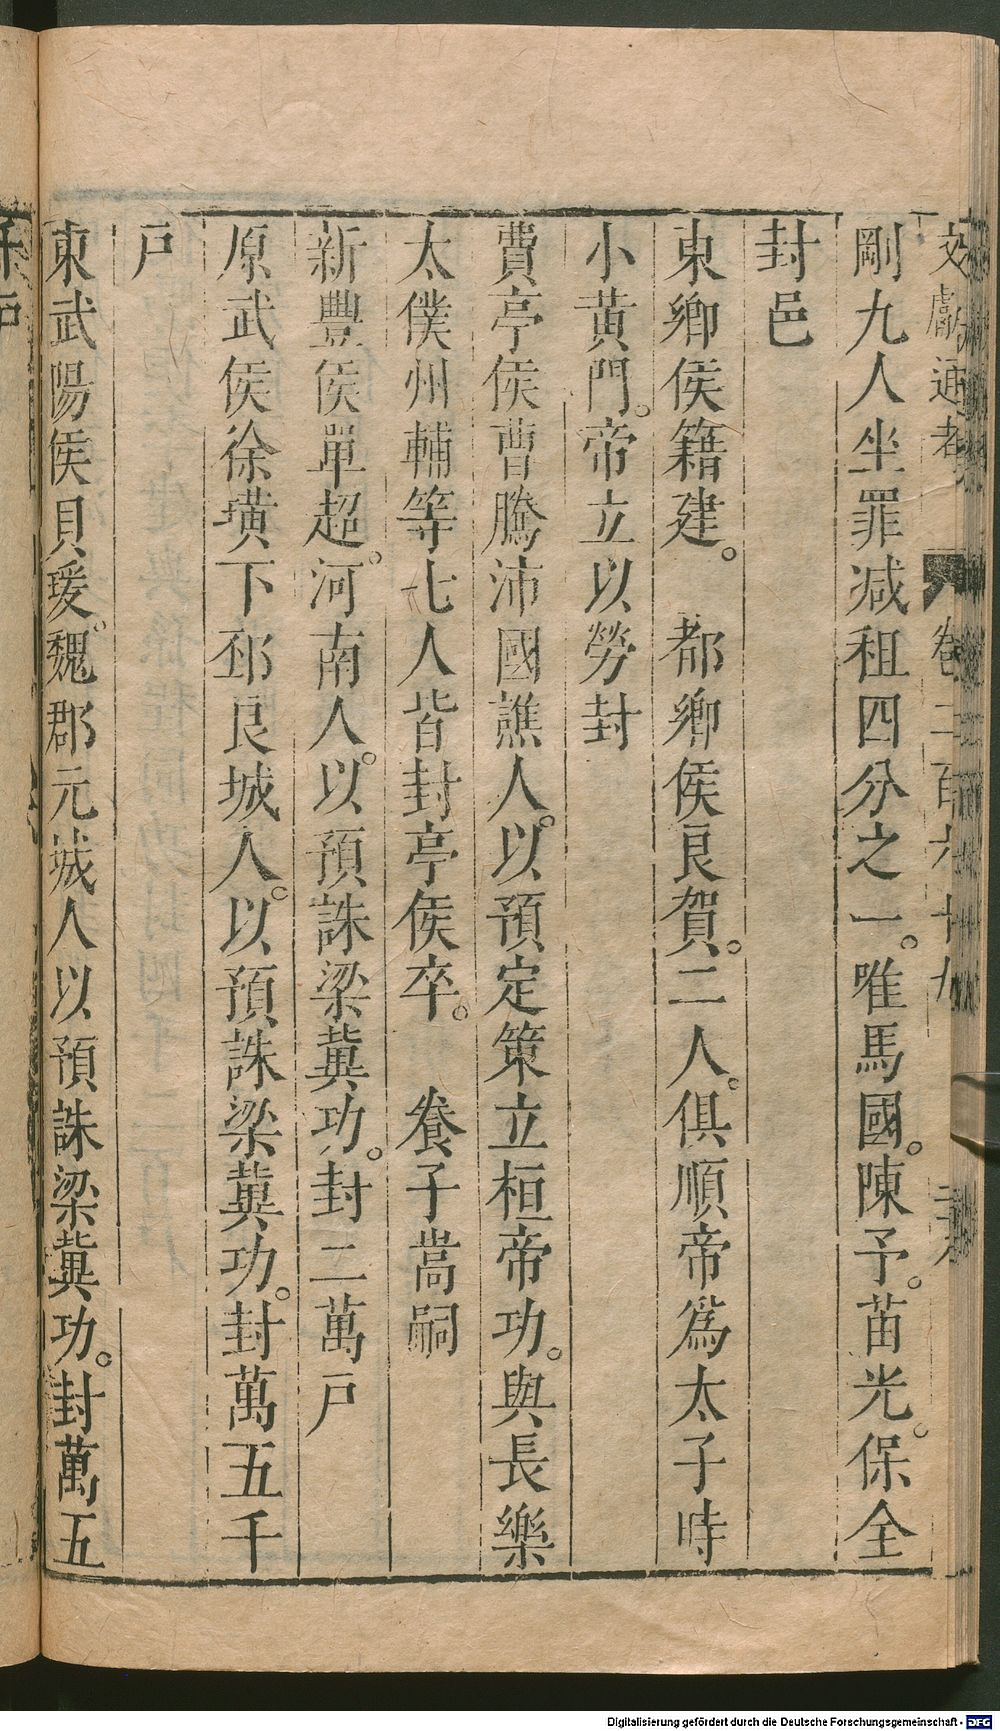 文獻通考 卷二百六十九
剛九人坐罪减租四分之一。唯馬國。陳予。苗光。保全
封邑
東鄉侯籍建。 都鄉侯良賀。二人。俱順帝爲太子時
小黄門。帝立以勞封
費亭侯曹騰沛國譙人。以預定策立桓帝功。與長樂
太僕州輔等七人皆封亭侯卒。 養子嵩嗣
新豐侯單超。河南人。以預誅梁冀功。封二萬戸
原武侯徐璜下邳良城人。以預誅梁冀功。封萬五千
戸
東武陽侯具瑗。魏郡元城人以預誅梁冀功。封萬五
千戸
Digitalisierung gefördert durch die Deutsche Forschungsgemeinschaft - DFG